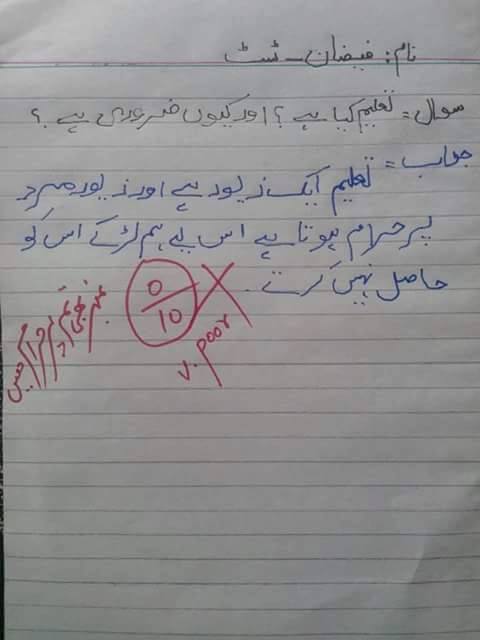 نام: فیضان - ٹسٹ
سوال = تعلیم کیا ہے؟ اور کیوں ضروری ہے؟
جواب = تعلیم ایک زیور ہے اور زیور مرد
پر حرام ہوتا ہے اس لیے ہم لڑکے اس کو
حاصل نہیں کرتے۔
0
10
v. poor
نمبر بھی تم پر حرام ہیں